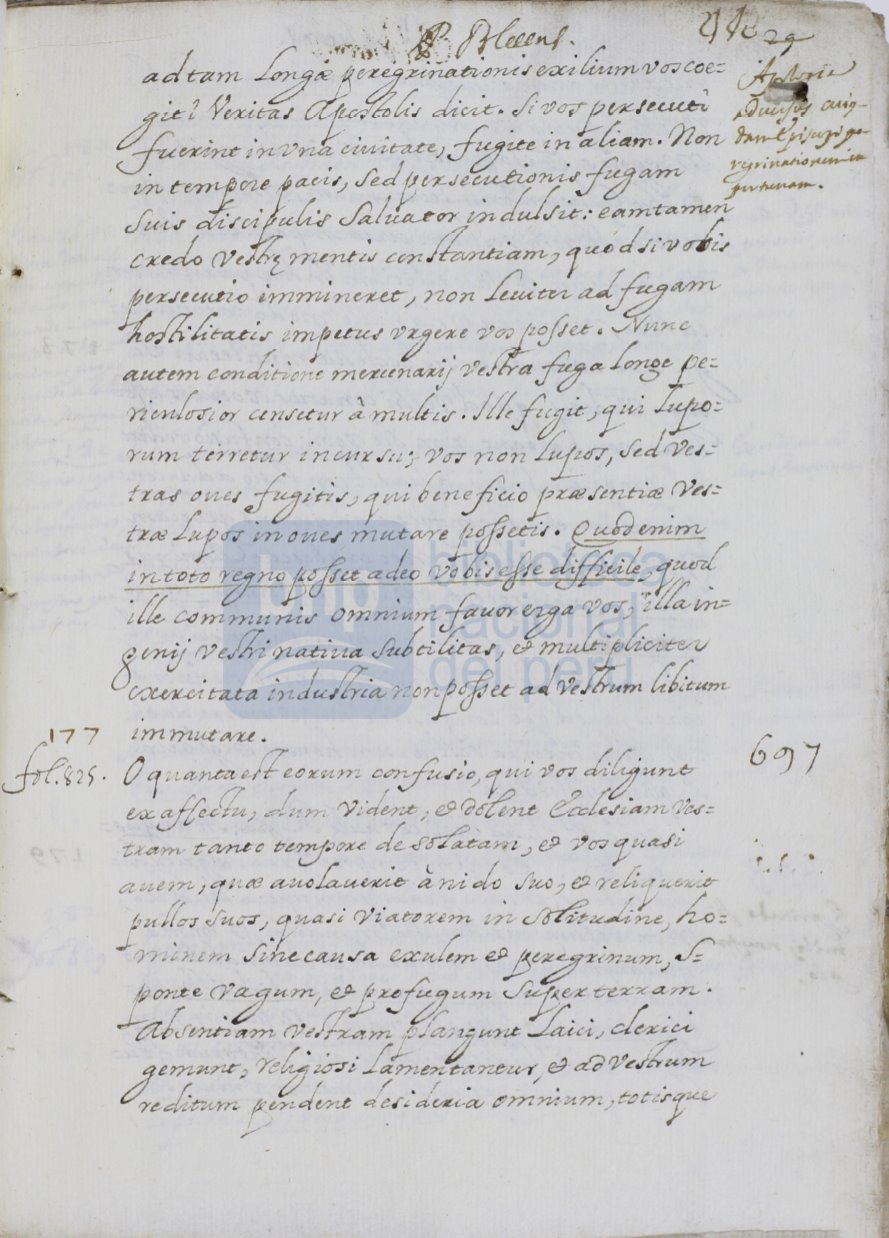 P. Blesens.
29
ad tam Longæ peregrinationis exilium vos coe=
git? Veritas Apostolis dicit. Si vos persecuti
fuerint in vna ciuitate, fugite in aliam. Non
in tempore pacis, sed persecutionis fugam
suis discipulis Saluator indulsit: eam tamen
credo vestrę mentis constantiam, quòd si vobis
persecutio immineret, non leuiter ad fugam
hostilitatis impetus vrgere vos posset. Nunc
autem conditione mercenarij vestra fuga longe pe=
riculosior censetur à multis. Ille fugit, qui Lupo=
rum terretur incursu; vos non Lupos, sed ves=
tras oues fugitis, qui beneficio præsentiæ ves=
træ Lupos in oues mutare possetis. Quod enim
in toto regno posset adeo vobis esse difficile, quod
ille communis omnium fauor erga vos, illa in=
genij vestri natiua subtilitas, et multipliciter
exercitata industria non posset ad vestrum libitum
immutare.
177
fol. 825.
697
O quanta est eorum confusio, qui vos diligunt
ex affectu, dum vident, et dolent Ecclesiam ves=
tram tanto tempore desolatam, et vos quasi
auem, quæ auolauerit à nido suo, et reliquerit
pullos suos, quasi viatorem in solitudine, ho=
minem sine causa exulem et peregrinum, s=
ponte vagum, et profugum super terram.
Absentiam vestram plangunt Laici, clerici
gemunt, religiosi Lamentantur, et ad vestrum
reditum pendent desideria omnium, totisque
biblioteca
nacional
del perú